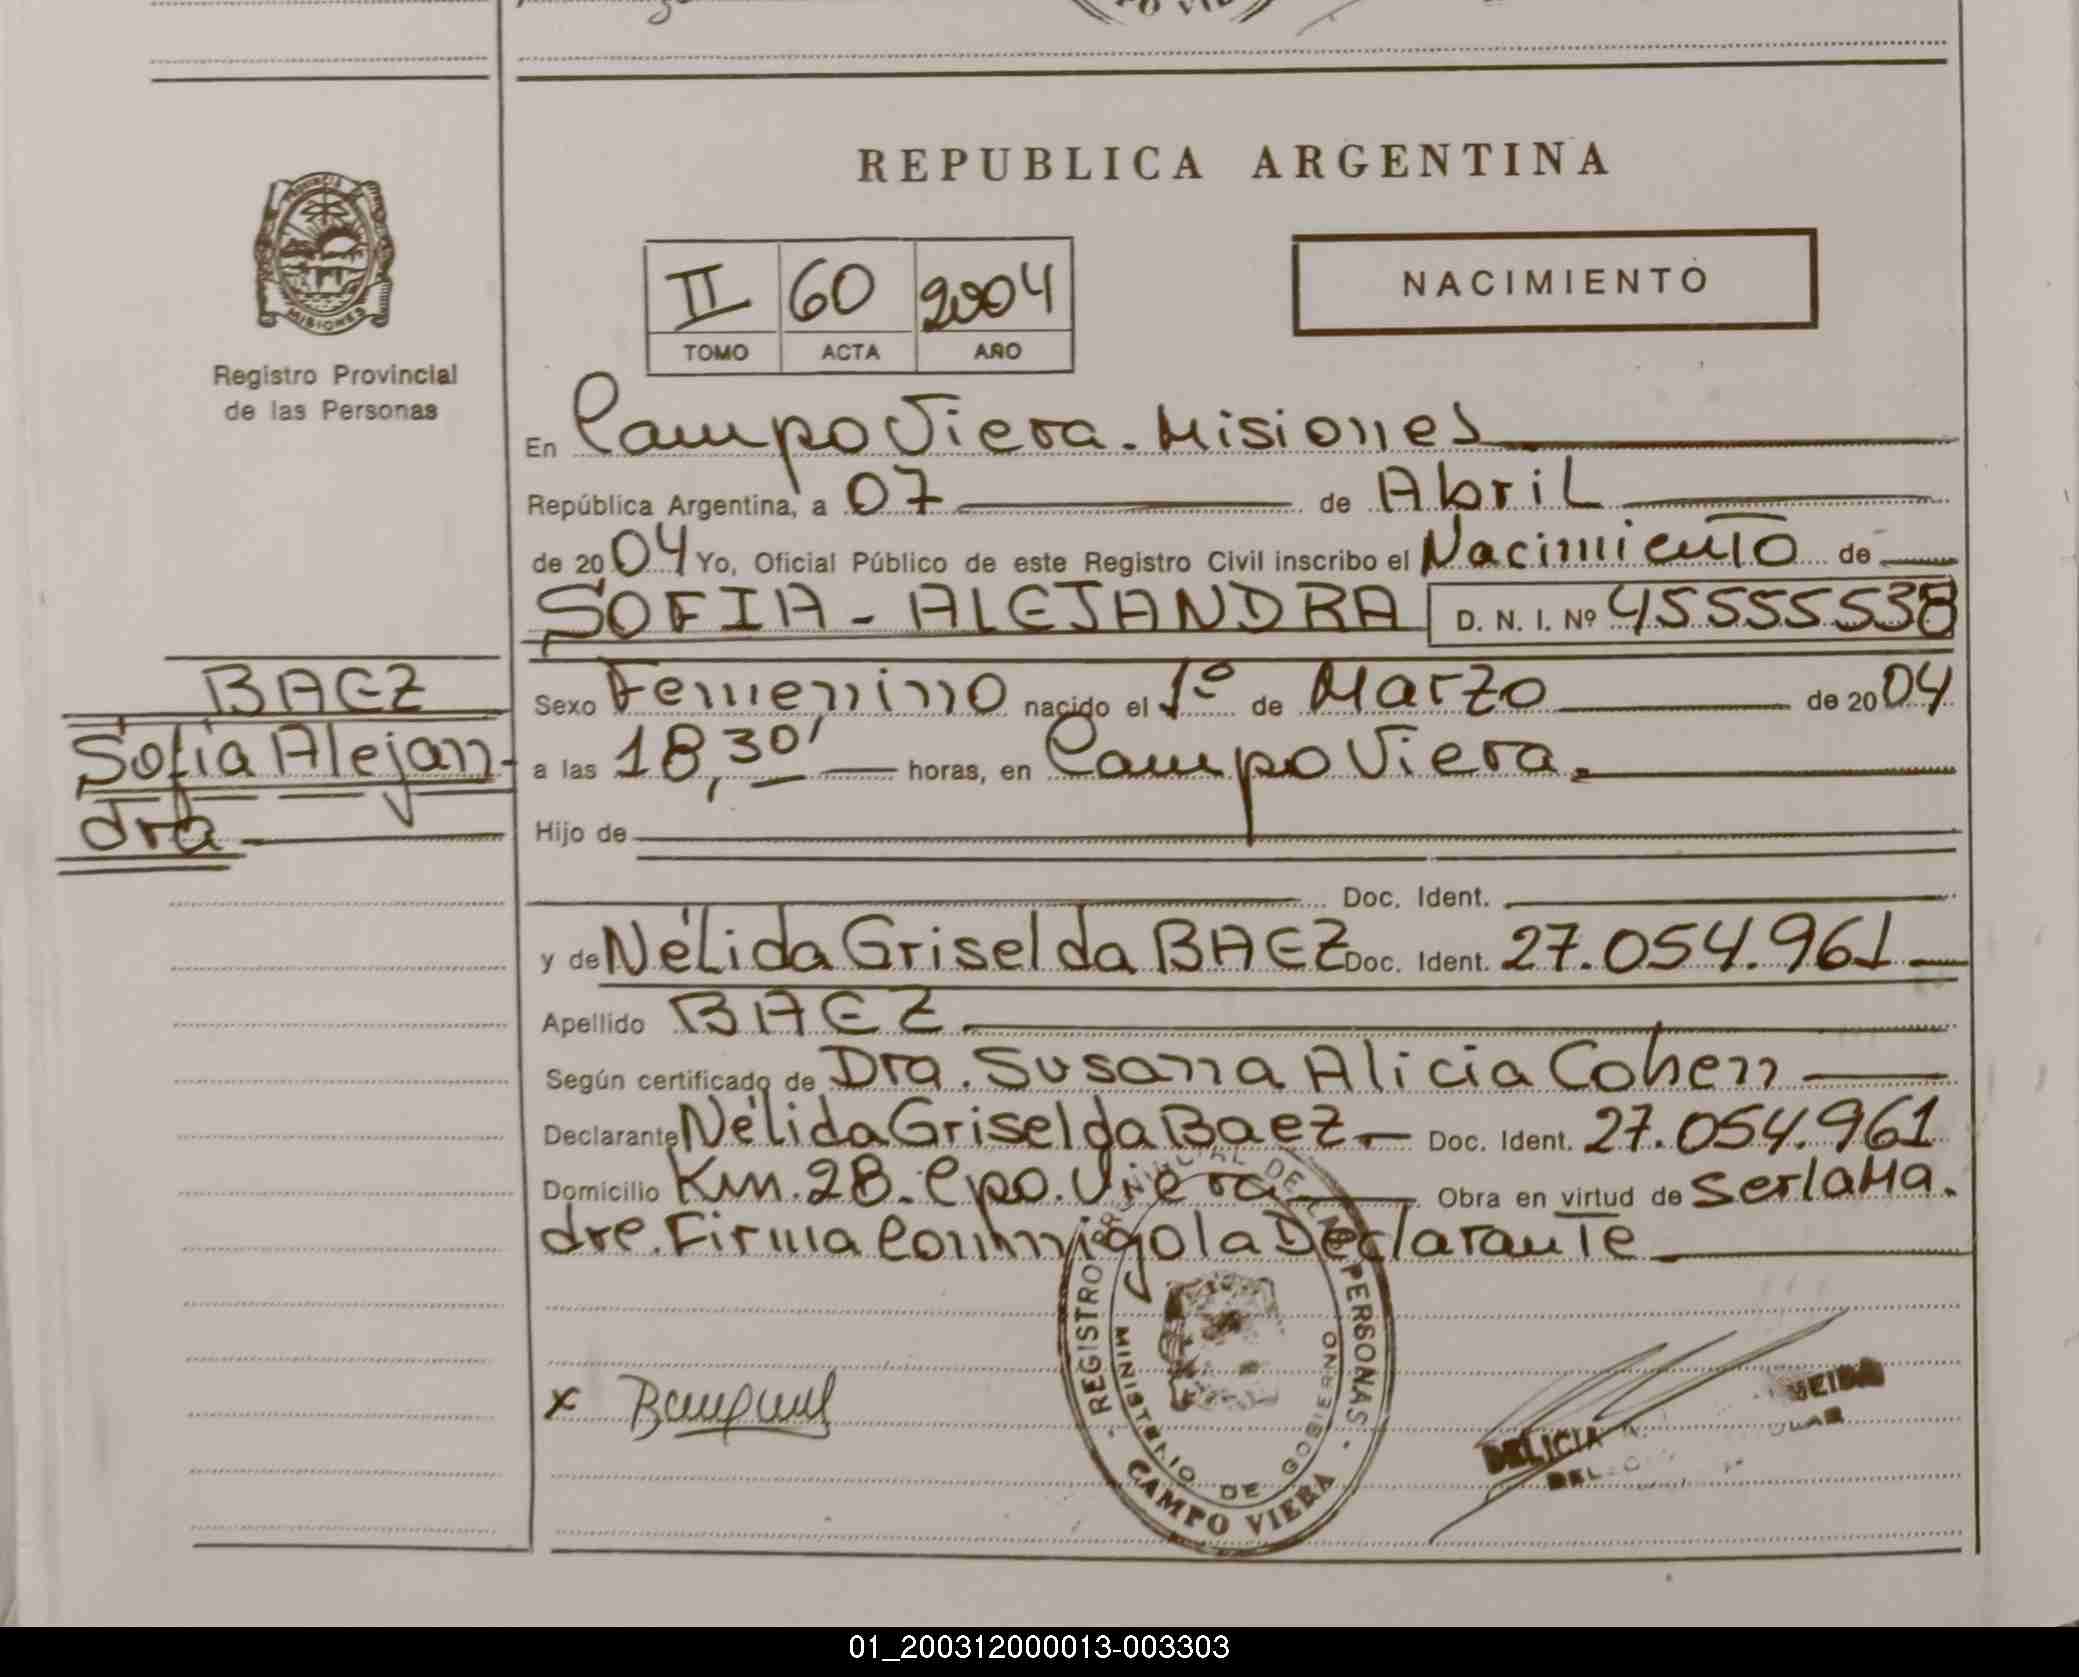 REPUBLICA ARGENTINA
PROVINCIA
MISIONES
Registro Provincial
de las Personas
NACIMIENTO
II 60 2004
TOMO ACTA AÑO
En Campo Viera - Misiones
República Argentina, a 07 de Abril
de 2004 Yo, Oficial Público de este Registro Civil inscribo el Nacimiento de
SOFIA - ALEJANDRA D. N. I. Nº 45555538
BAEZ
Sofia Alejan-
dra
Sexo Femenino nacido el 1º de Marzo de 2004
a las 18,30' horas, en Campo Viera.
Hijo de
Doc. Ident.
y de Nélida Griselda BAEZ Doc. Ident. 27.054.961
Apellido BAEZ
Según certificado de Dra. Susana Alicia Cohen
Declarante Nélida Griselda Baez.- Doc. Ident. 27.054.961
Domicilio Km. 28. Cpo. Viera Obra en virtud de ser la Ma.
dre. Firma Conmigo la Declarante
REGISTRO PROVINCIAL DE LAS PERSONAS
MINISTERIO DE GOBIERNO
CAMPO VIERA
x
DELICIA
01_200312000013-003303